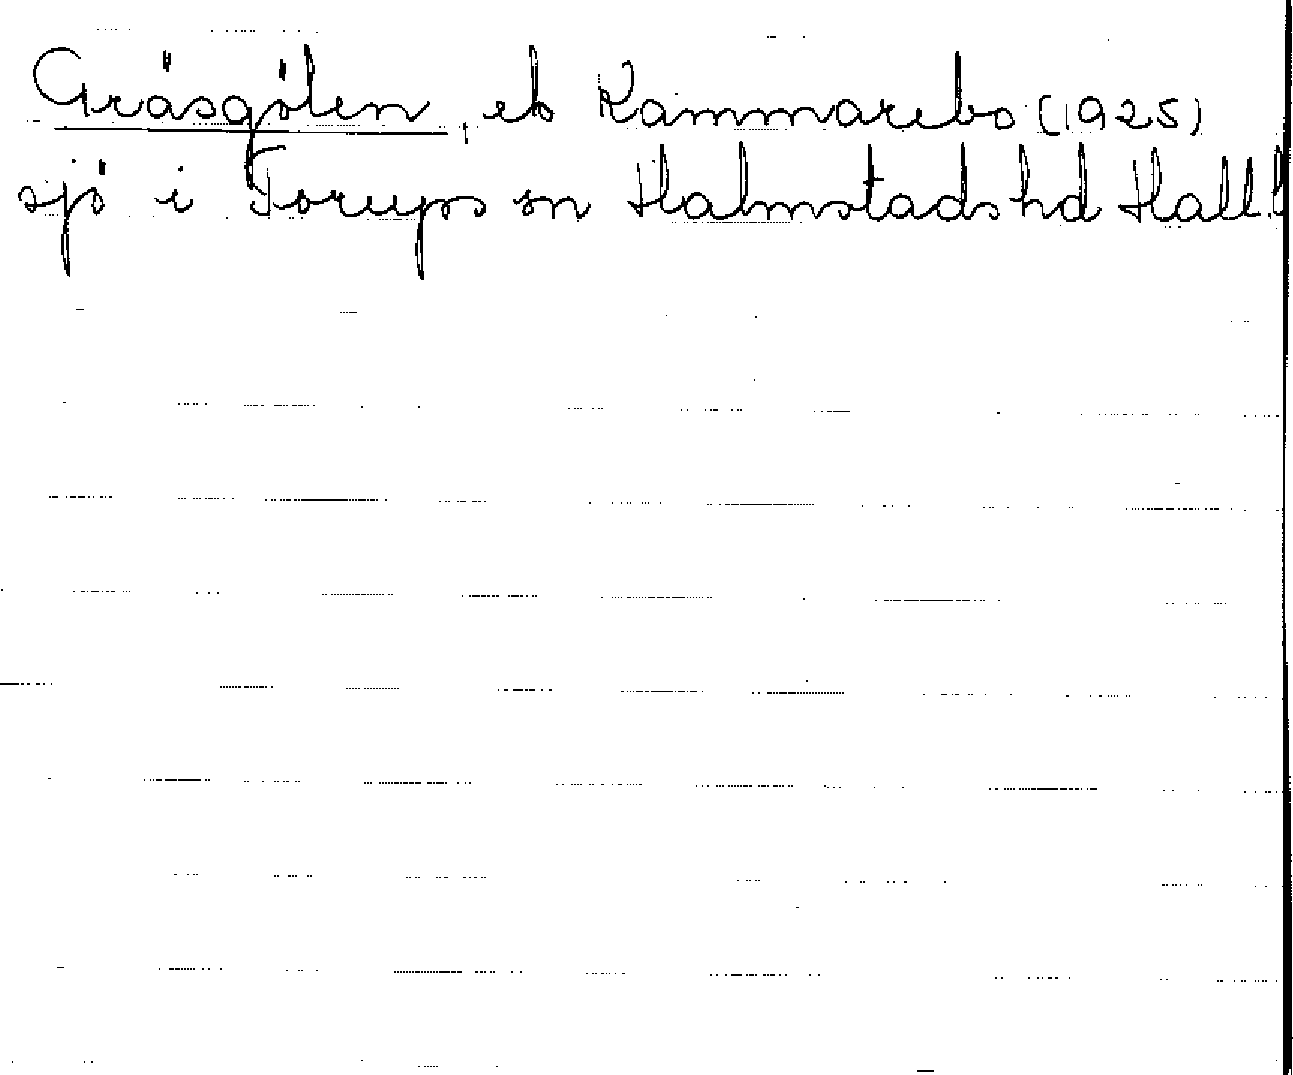 Gräsgölen, eb Kammarebo (1925)
sjö i Torups sn Halmstads hd Hall.